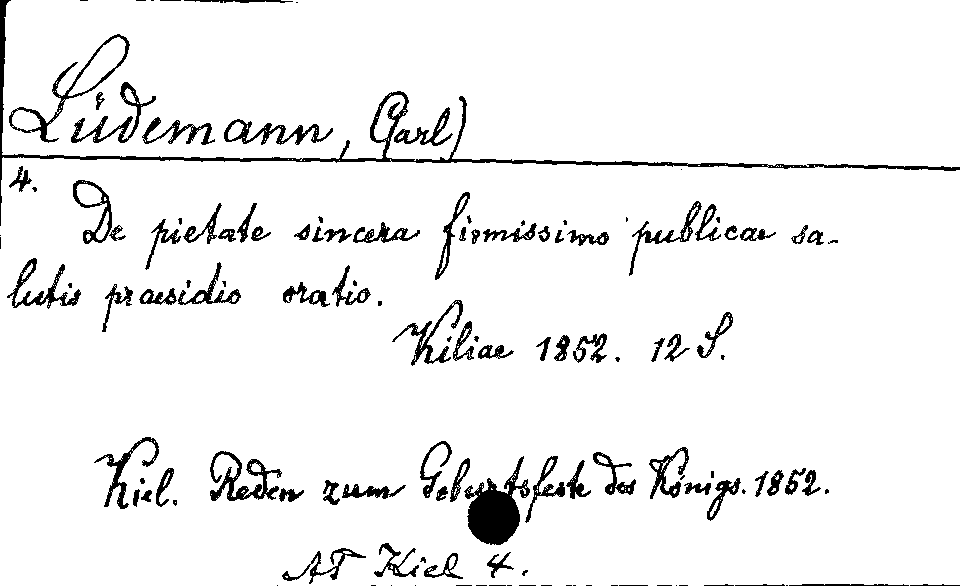 Lüdemann, Carl)
4.
De pietate sincera firmissimo publicae sa-
lutis praesidio oratio.
Kiliae 1852. 12 S.
Kiel. Reden zum Geburtsfeste des Königs. 1852.
AT Kiel 4.